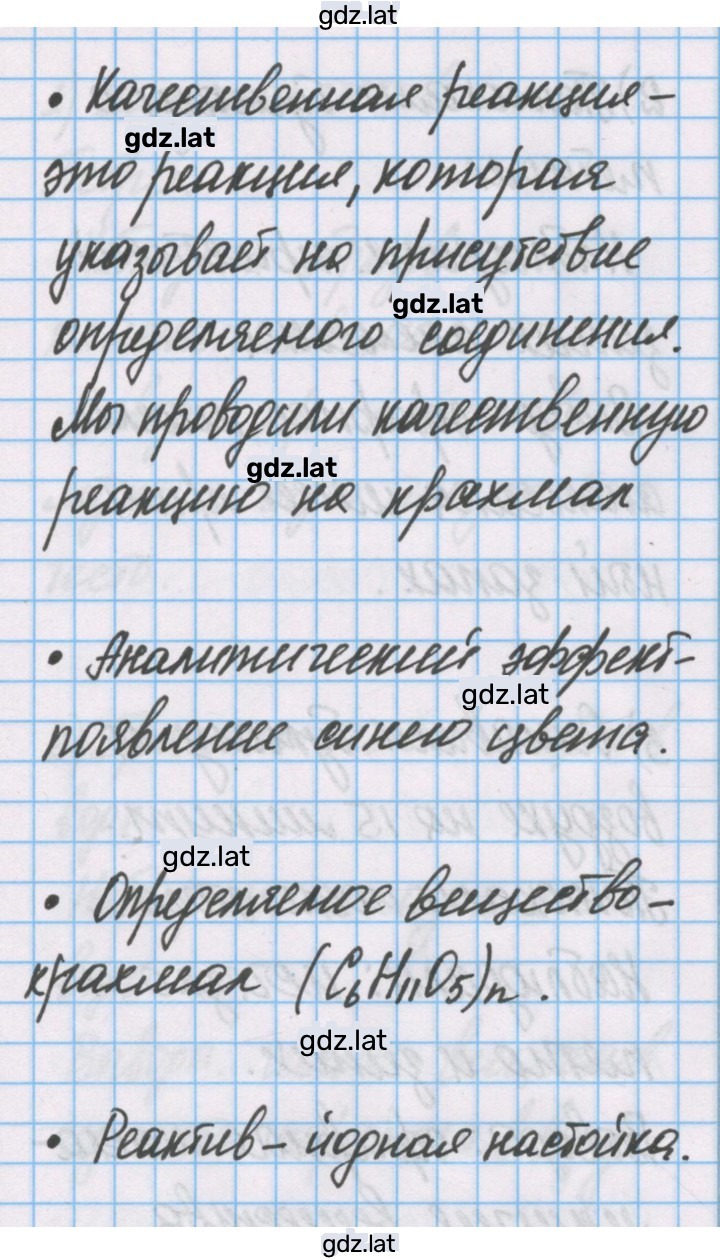 gdz.lat
• Качественная реакция –
gdz.lat
это реакция, которая
указывает на присутствие
gdz.lat
определяемого соединения.
Мы проводили качественную
gdz.lat
реакцию на крахмал
• Аналитический эффект –
gdz.lat
появление синего цвета.
gdz.lat
• Определяемое вещество –
крахмал (C₆H₁₁O₅)n.
gdz.lat
• Реактив – йодная настойка.
gdz.lat